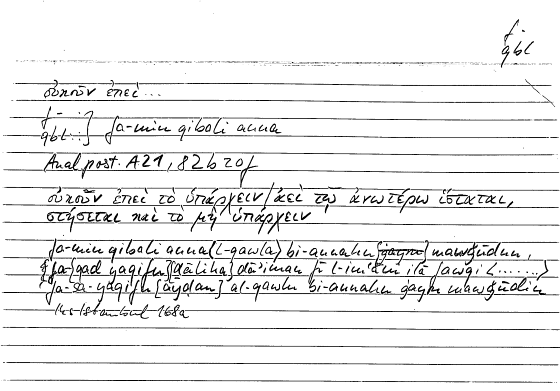 f - .
qbl
οὐκοῦν ἐπεί...
f - .
qbl..] fa-min qibali anna
Anal. post. A 21, 82b 20f
οὐκοῦν ἐπεὶ τὸ ὑπάρχειν / ἀεὶ τῷ ἀνωτέρω ἵσταται,
στήσεται καὶ τὸ μὴ ὑπάρχειν
fa-min qibali anna (l-qawla) bi-annahu [ġayru] mawǧūdun,
[fa-] qad yaqifu [ḏālika] dāʾiman fī l-imʿāni ilā fawqi (.......)
fa-sa-yaqifu [ayḍan] al-qawlu bi-annahu ġayru mawǧūdin
Hs Istanbul 168a